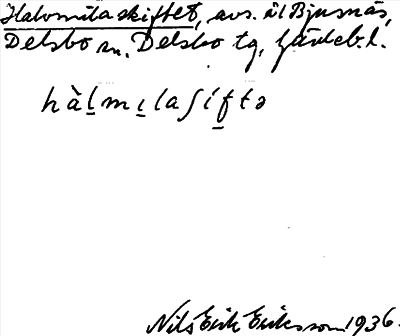 Halvmilaskiftet, avs. äl Bjusnäs,
Delsbo sn. Delsbo tg, Gävleb. l.
hàl̠mi̠laʃif̠tə
Nils Erik Eriksson 1936.